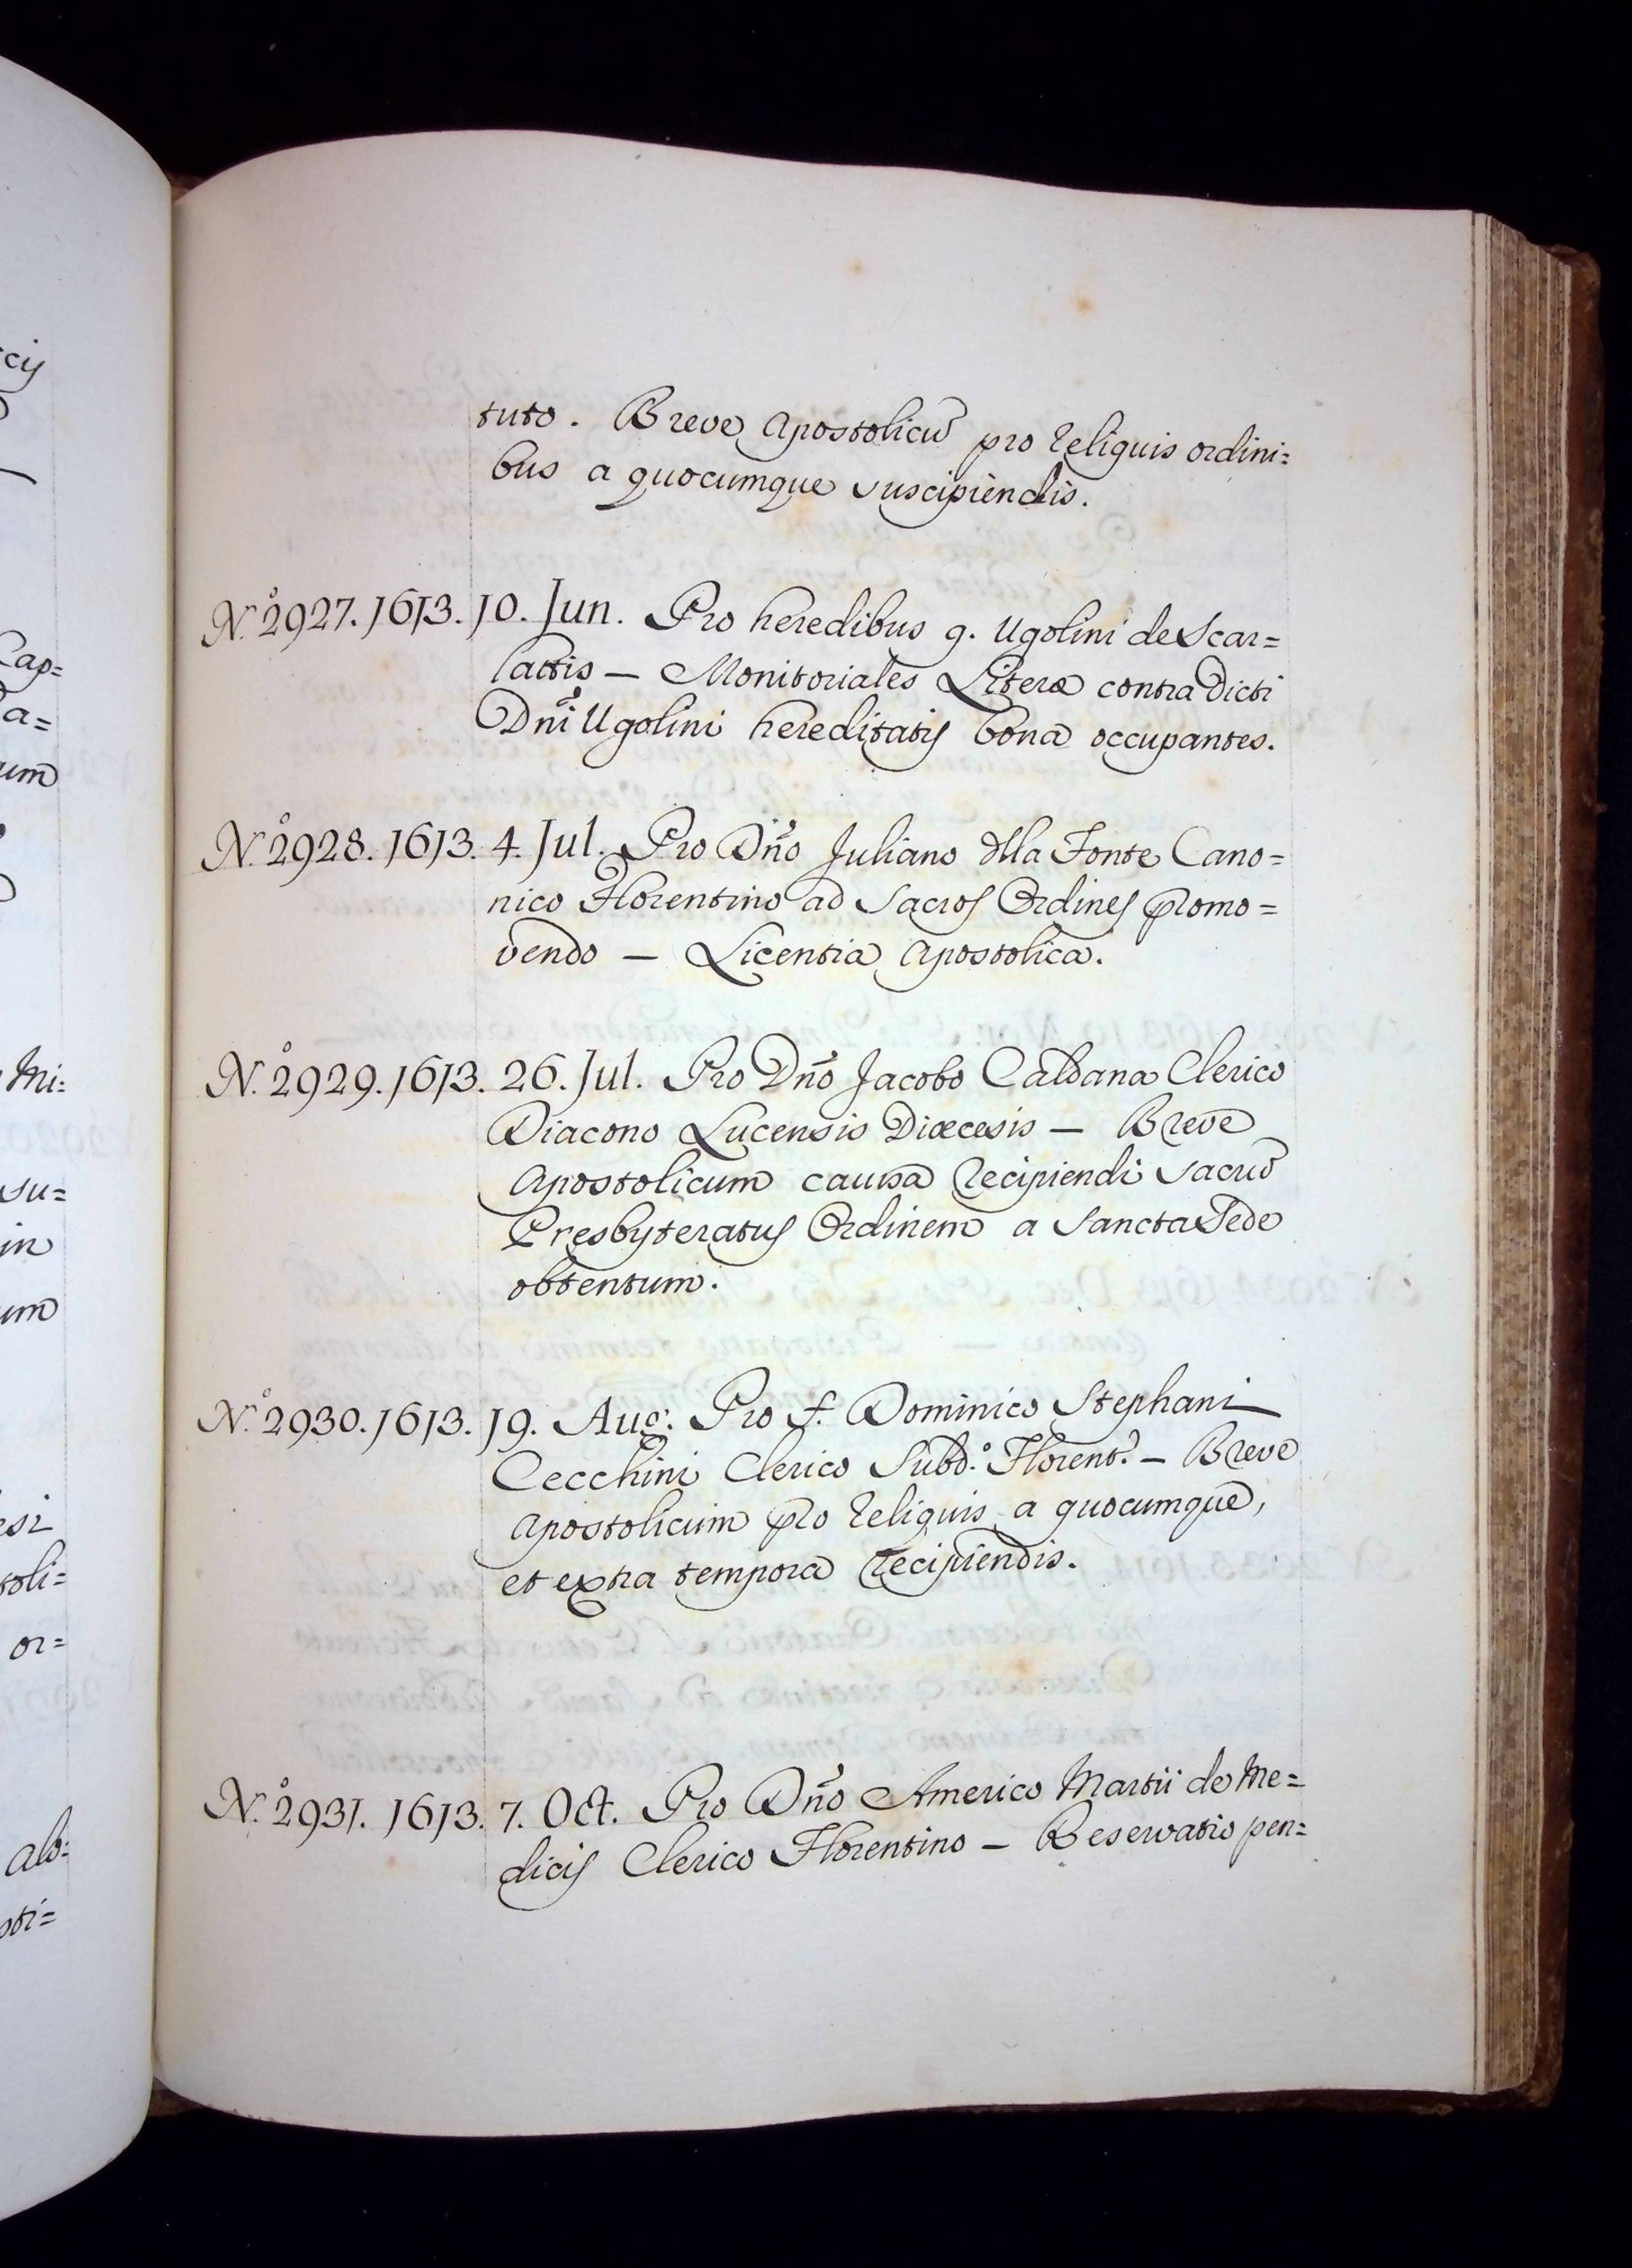 cij
Cap=
a=
um
Mi:
su=
in
um
esi
toli=
or=
ab:
sti=
tuto. Breve Apostolicū pro reliquis ordini=
bus a quocumque suscipiendis.
N.° 2927. 1613. 10. Jun. Pro heredibus q. Ugolini de Scar=
lattis — Monitoriales Literæ contra dicti
Dñi Ugolini hereditatis bona occupantes.
N.° 2928. 1613. 4. Jul. Pro Dño Juliano dlla Fonte Cano=
nico Florentino ad Sacros Ordines promo=
vendo — Licentia Apostolica.
N.° 2929. 1613. 26. Jul. Pro Dño Jacobo Caldana Clerico
Diacono Lucensis Diœcesis — Breve
Apostolicum causa recipiendi sacrū
Presbyteratus Ordinem a Sancta Sede
obtentum.
N.° 2930. 1613. 19. Aug. Pro f. Dominico Stephani
Cecchini Clerico Subd.° Florent.° — Breve
Apostolicum pro reliquis a quocumque,
et extra tempora recipiendis.
N.° 2931. 1613. 7. Oct. Pro Dño Americo Martii de Me=
dicis Clerico Florentino — Reservatio pen=